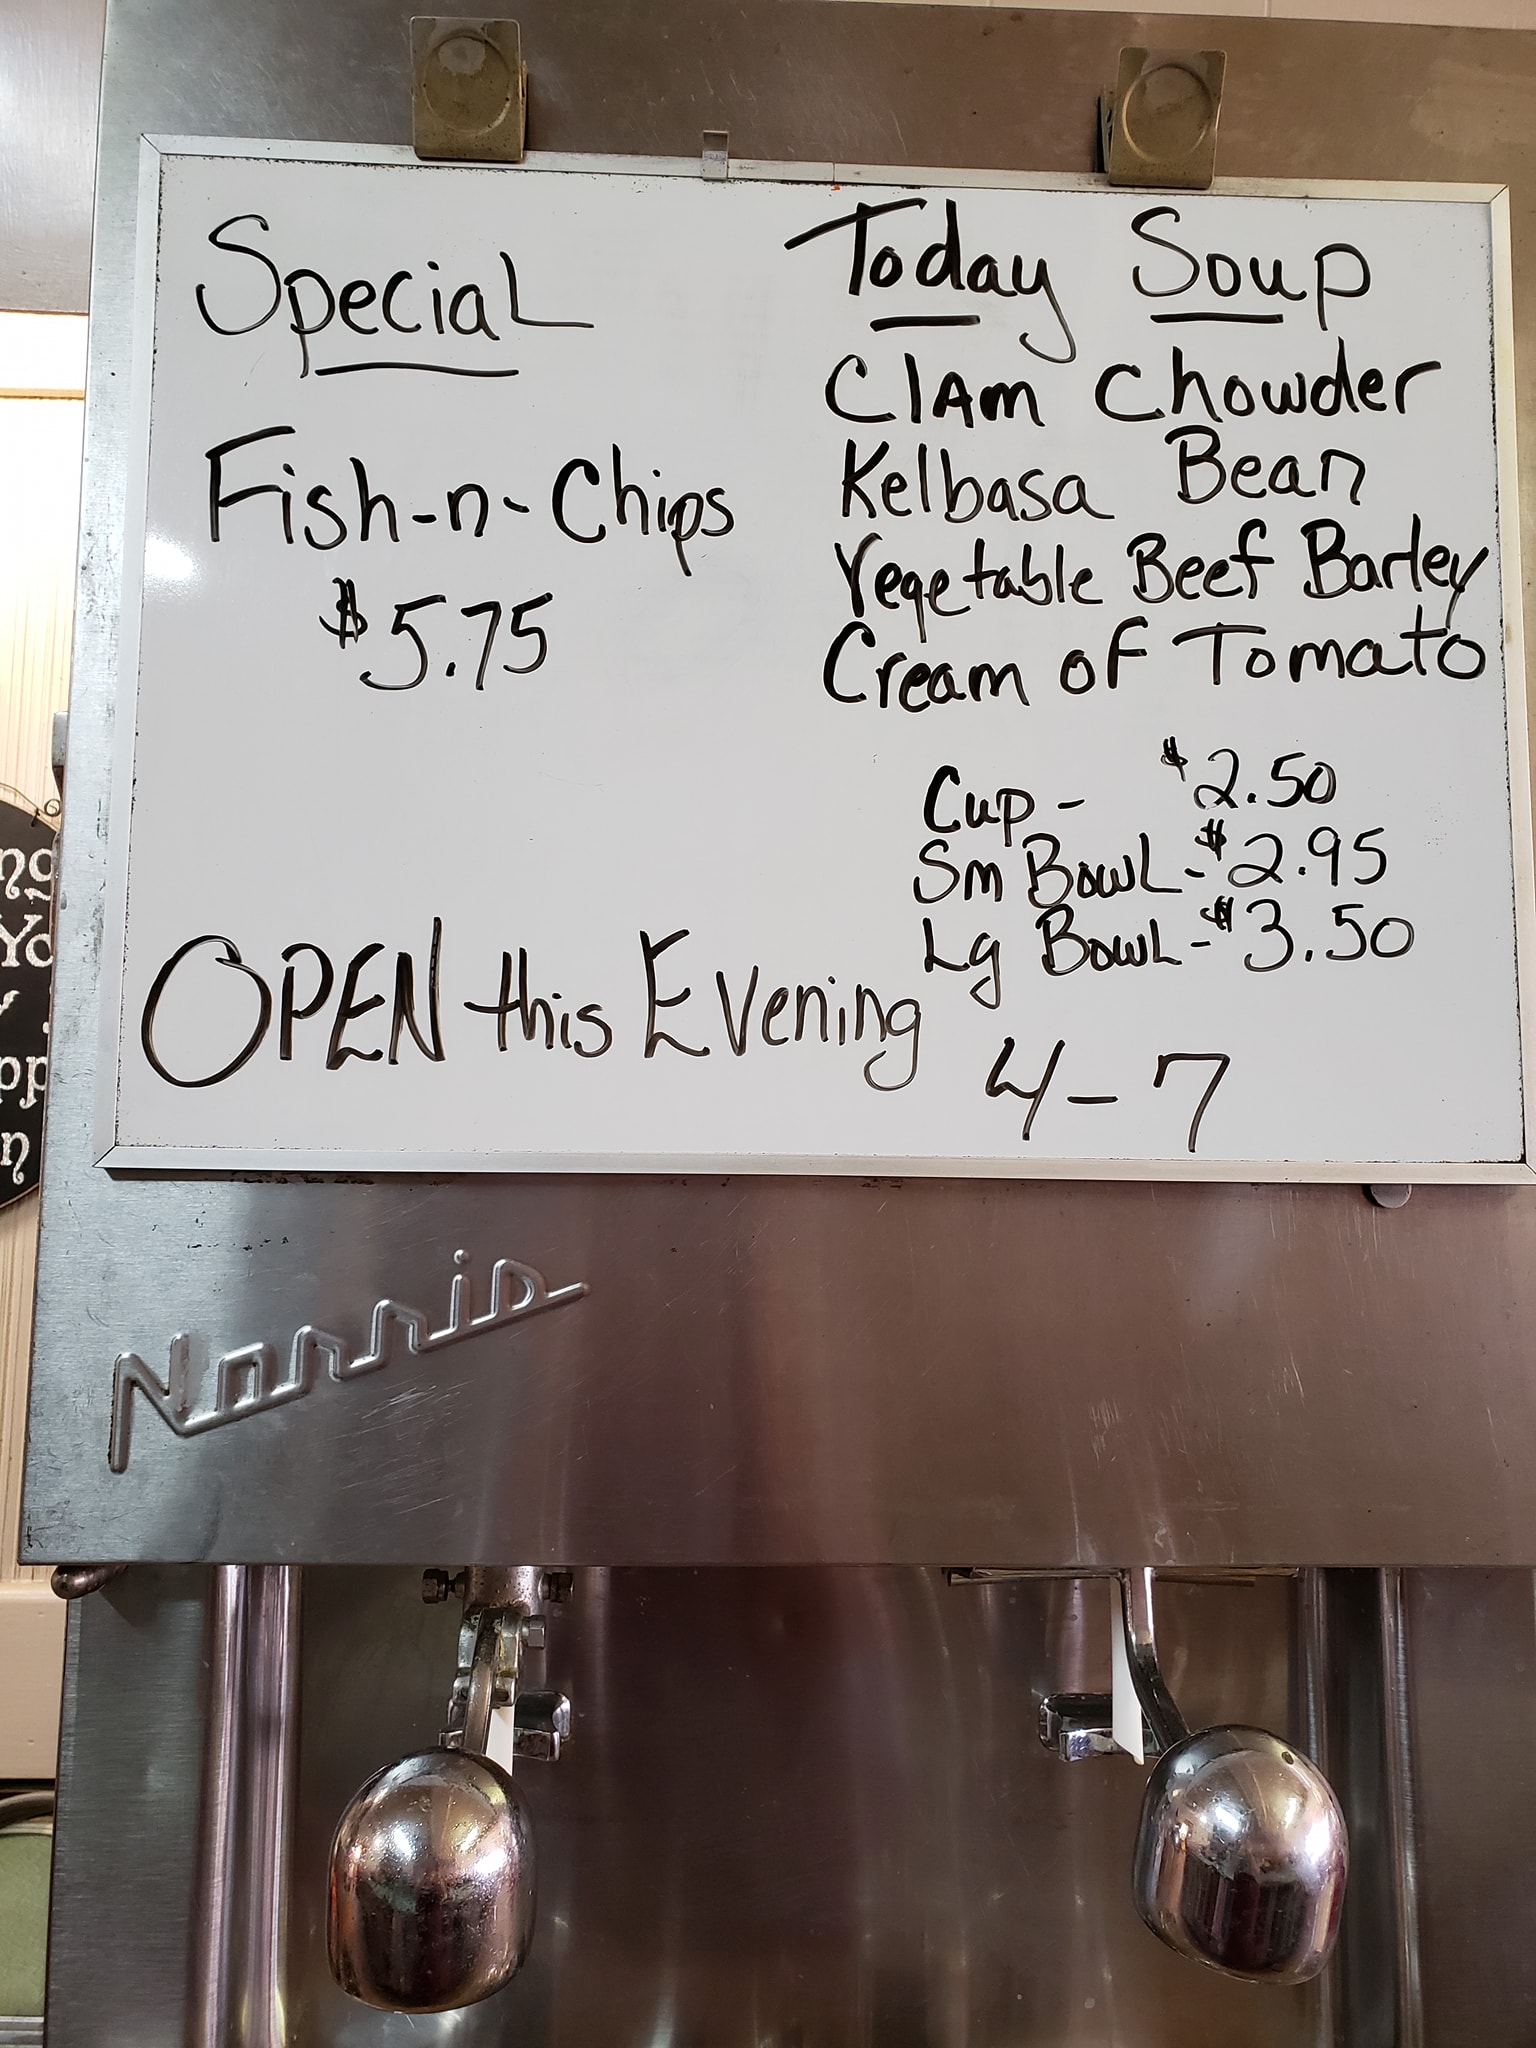 Special
Fish-n-Chips
$5.75
Today Soup
Clam Chowder
Kelbasa Bean
Vegetable Beef Barley
Cream of Tomato
Cup - $2.50
Sm Bowl - $2.95
Lg Bowl - $3.50
OPEN this Evening 4-7
Norris